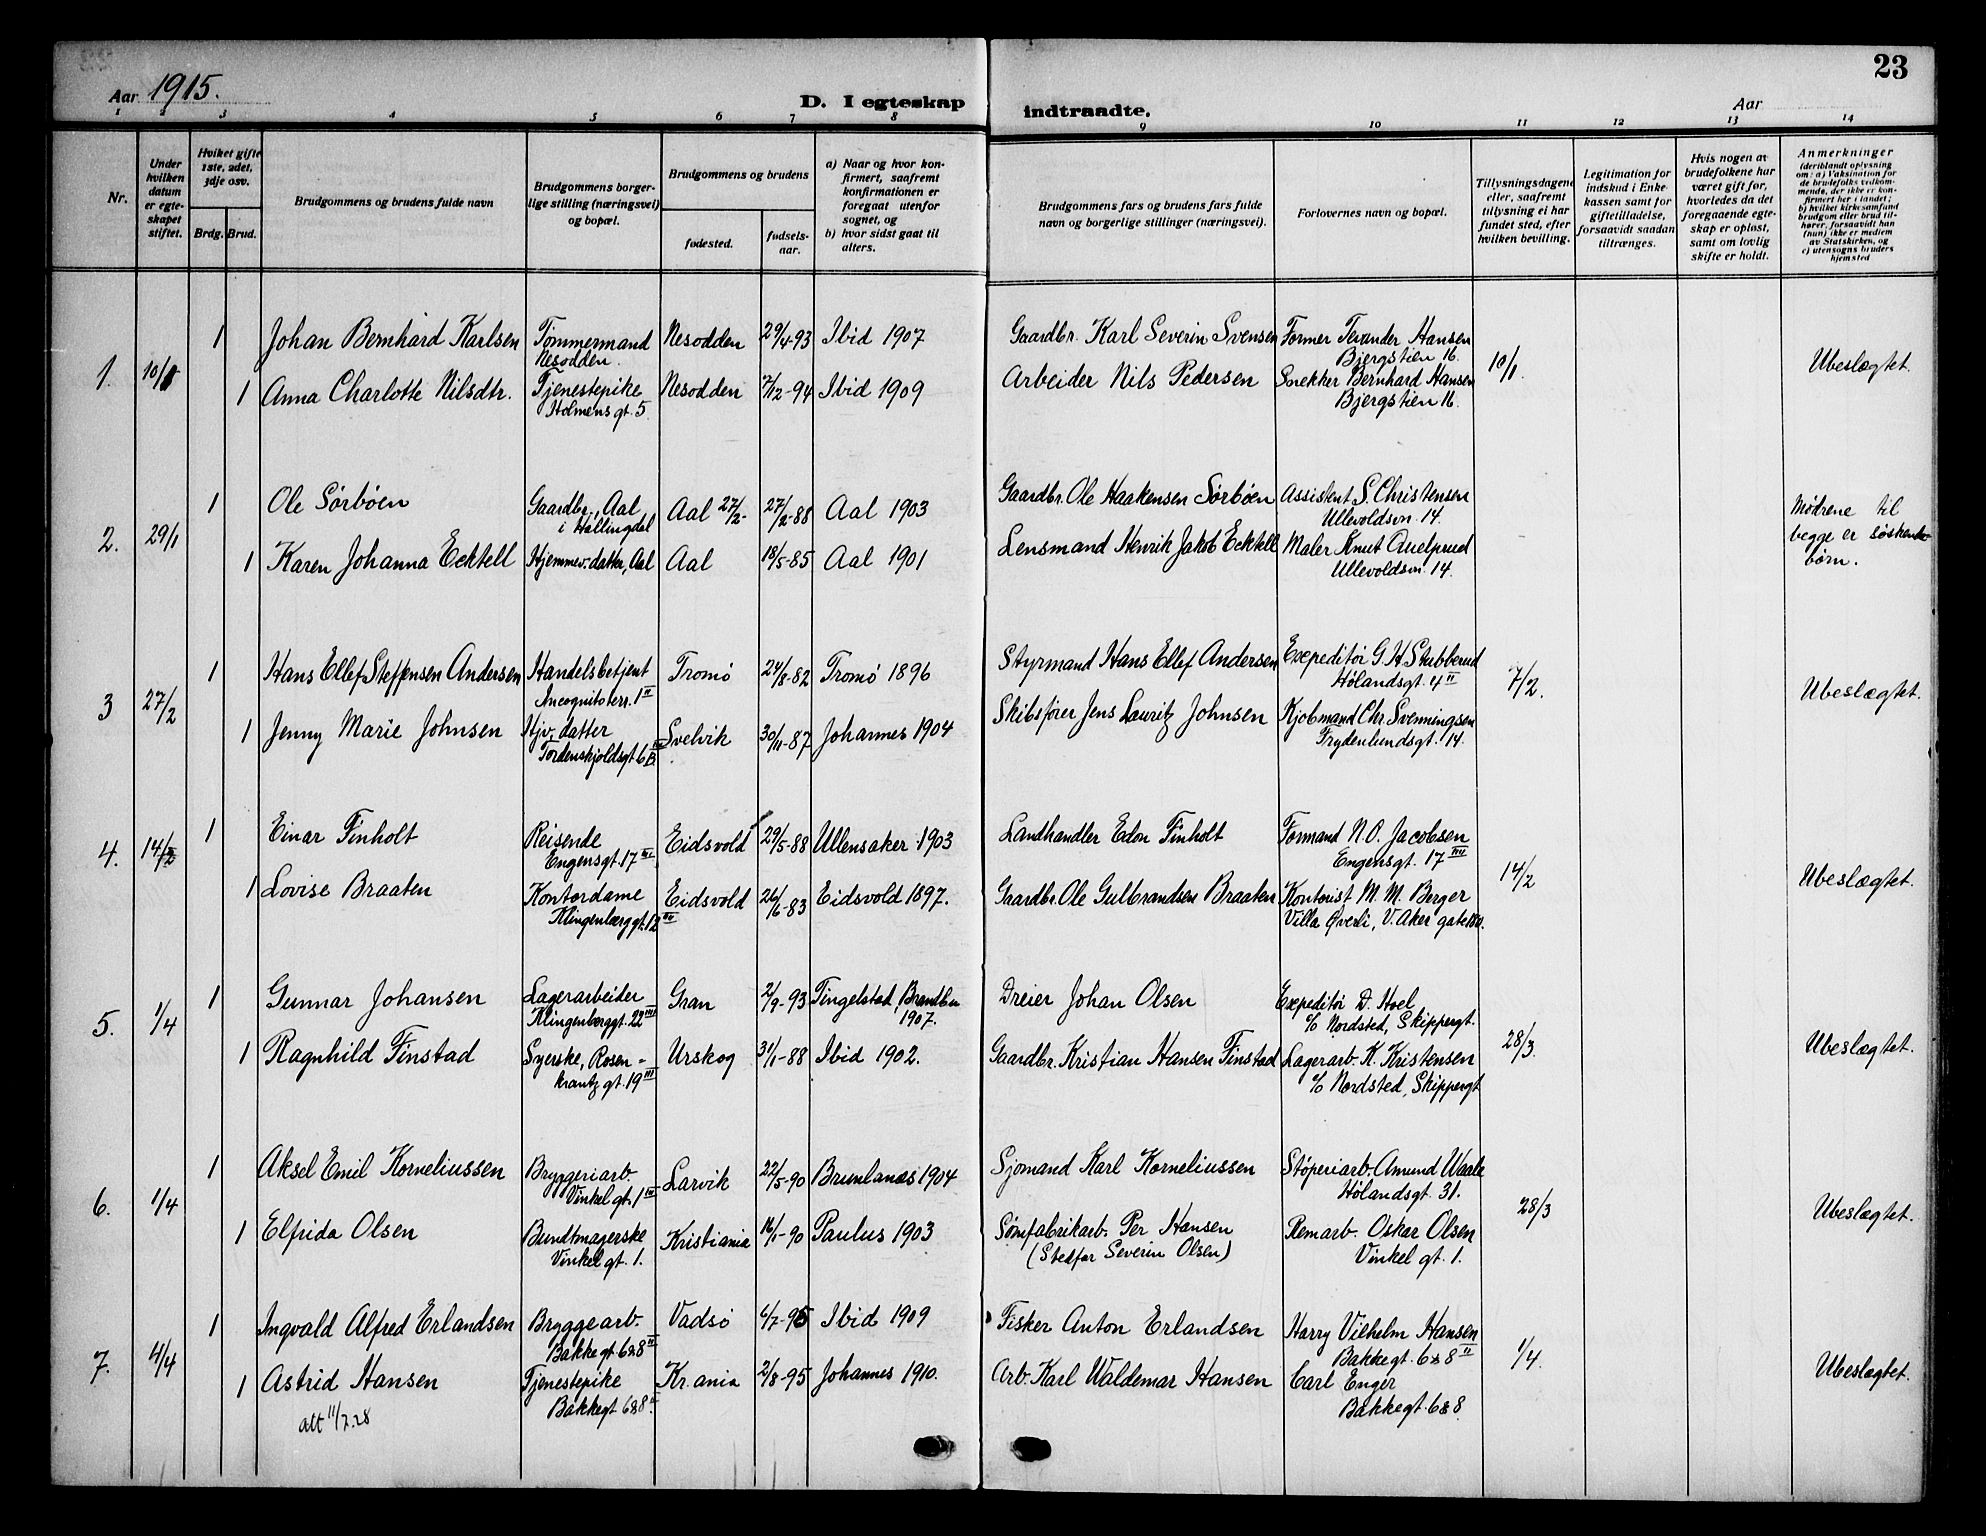 Aar 1915.
D. I egteskap indtraadte.
Aar
23
1 2 3 4 5 6 7 8 9 10 11 12 13 14
Nr.
Under hvilken datum er egteskapet stiftet.
Hviket gifte 1ste, 2det, 3dje osv.
Brdg. Brud.
Brudgommens og brudens fulde navn
Brudgommens borgerlige stilling (næringsvei) og bopæl.
Brudgommens og brudens
fødested.
fødselsaar.
a) Naar og hvor konfirmert, saafremt konfirmationen er foregaat utenfor sognet, og
b) hvor sidst gaat til alters.
Brudgommens fars og brudens fars fulde navn og borgerlige stillinger (næringsvei).
Forlovernes navn og bopæl.
Tillysningsdagene eller, saafremt tillysning ei har fundet sted, efter hvilken bevilling.
Legitimation for indskud i Enkekassen samt for giftetilladelse, forsaavidt saadan tiltrænges.
Hvis nogen av brudefolkene har været gift før, hvorledes da det foregaaende egteskap er opløst, samt om lovlig skifte er holdt.
Anmerkninger (deriblandt oplysning om: a) Vaksination for de brudefolks vedkommende, der ikke er konfirmert her i landet; b) hvilket kirkesamfund brudgom eller brud tilhører, forsaavidt han (hun) ikke er medlem av Statskirken, og c) utensogns bruders hjemsted
1. 10/1
1 Johan Bernhard Karlsen Tømmermand Nesodden. Nesodden 29/4-93 Ibid 1907 Gaardbr. Karl Severin Svensen Former Tevander Hansen Bjergstien 16. 10/1. Ubeslægtet.
1 Anna Charlotte Nilsdtr. Tjenestepike Holmensgt. 5 Nesodden 7/12-94 Ibid 1909 Arbeider Nils Pedersen Snekker Bernhard Hansen Bjergstien 16.
2. 29/1
1 Ole Sørbøen Gaardbr., Aal i Hallingdal Aal 27/2- 27/2-88 Aal 1903 Gaardbr. Ole Haakensen Sørbøen Assistent S. Christensen Ullevoldsvn. 14. Mødrene til begge er søskendebørn.
1 Karen Johanna Ecktell Hjemmev. datter, Aal Aal 18/5-85 Aal 1901 Lensmand Henrik Jakob Ecktell Maler Knut Auelprud Ullevoldsvn. 14.
3 27/2
1 Hans Ellef Steffensen Andersen Handelsbetjent Incognitoterr. 1 II Tromø 24/8-82 Tromø 1896 Styrmand Hans Ellef Andersen Expeditør G. H. Stubberud Hølandsgt. 4 II 7/2. Ubeslægtet.
1 Jenny Marie Johnsen Hjv. datter Tordenskjoldsgt 6 B. Svelvik 30/11-87 Johannes 1904 Skibsfører Jens Lauritz Johnsen Kjøbmand Chr. Svenningsen Frydenlundsgt. 14.
4. 14/2
1 Einar Finholt Reisende Engensgt. 17 III Eidsvold 29/5-88 Ullensaker 1903 Landhandler Edon Finholt Formand N. O. Jacobsen Engensgt. 17 III 14/2 Ubeslægtet.
1 Lovise Braaten Kontordame Klingenberggt. 12 Eidsvold 26/6-83 Eidsvold 1897. Gaardbr. Ole Gulbrandsen Braaten Kontorist M. M. Berger Villa Øverli, V. Aker
5. 1/4
1 Gunnar Johansen Lagerarbeider Klingenberggt. 22 III Gran 2/9-93 Tingelstad, Brandbu 1907. Dreier Johan Olsen Expeditør D. Hoel c/o Nordsted, Skippergt. 28/3. Ubeslægtet.
1 Ragnhild Finstad Syerske, Rosenkrantz gt. 19 III Urskog 31/1-88 Ibid 1902. Gaardbr. Kristian Hansen Finstad Lagerarb. K. Kristensen c/o Nordsted, Skippergt
6. 1/4
1 Aksel Emil Korneliussen Bryggeriarb. Vinkel gt. 1 III Larvik 22/5-90 Brunlanæs 1904 Sjømand Karl Korneliussen Støperiarb. Amund Waale Hølandsgt. 31. 28/3 Ubeslægtet.
1 Elfrida Olsen Bundtmagerske Vinkel gt. 1. Kristiania 16/1-90 Paulus 1903 Sømfabrikarb. Per Hansen (Stedfar Severin Olsen) Remarb. Oskar Olsen Vinkel gt. 1.
7. 4/4
1 Ingvald Alfred Erlandsen Bryggearb. Bakkegt. 6&8 II Vadsø 6/7-95 Ibid 1909 Fisker Anton Erlandsen Harry Vilhelm Hansen Bakkegt. 6&8 II 1/4. Ubeslægtet.
1 Astrid Hansen Tjenestepike Bakkegt 6&8 II Kr.ania 2/8-95 Johannes 1910. Arb. Karl Waldemar Hansen Carl Enger Bakkegt. 6&8
att 11/7.28